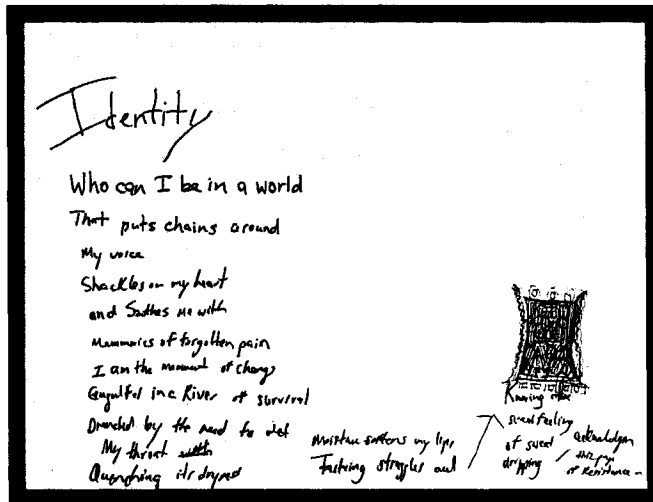 Identity
Who can I be in a world
That puts chains around
My voice
Shackles on my heart
and Soothes me with
Memmories of forgotten pain
I am the moment of change
Engulfed in a River of survival
Drenched by the need to wet
My throat with
Quenching its dryness
Moisture softens my lips
Tastring struggles and
Knowing
sweet feeling
of sweat
dripping
acknowledgen
of Resistance